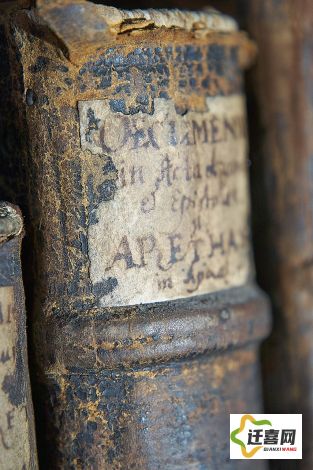 OECUMENI
in Acta
et Epistolas
ARETHAS
in Apoc
迁喜网
QIANXIWANG